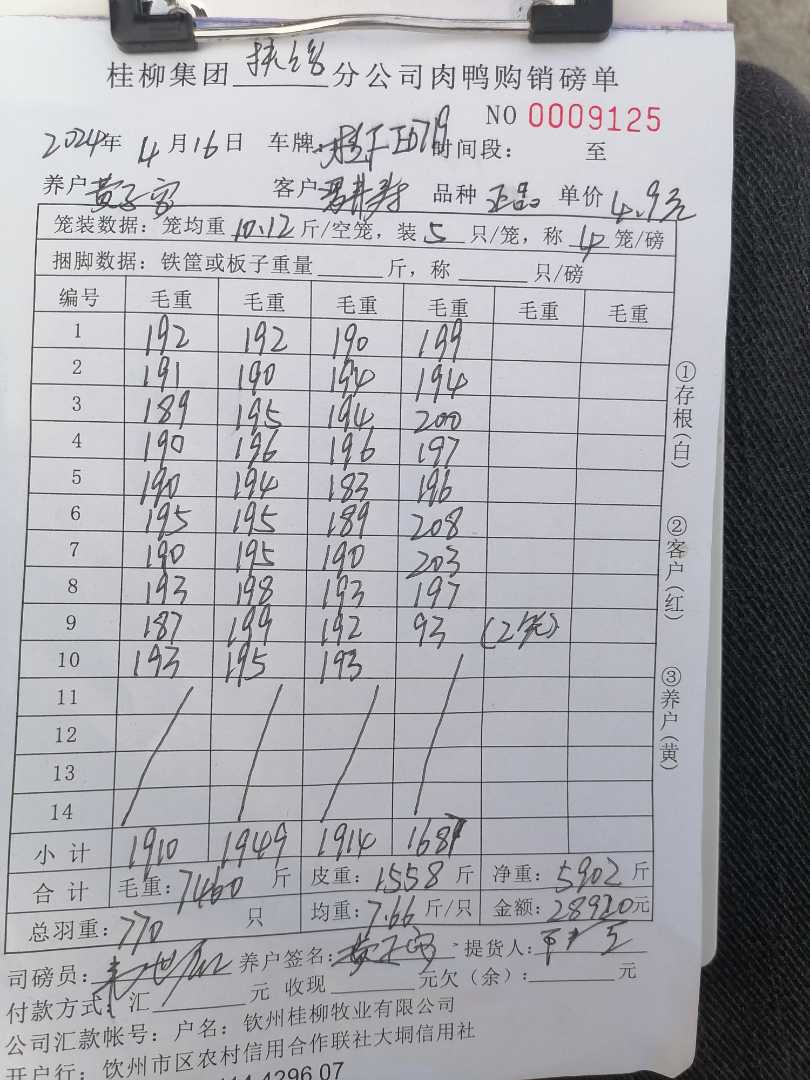 桂柳集团 分公司肉鸭购销磅单
NO 0009125
2024年 4月16日 车牌: 时间段: 至
养户 黄子富 客户 品种 正品 单价 4.9元
笼装数据: 笼均重 10.12 斤/空笼, 装 5 只/笼, 称 4 笼/磅
捆脚数据: 铁筐或板子重量 斤, 称 只/磅
编号 毛重 毛重 毛重 毛重 毛重 毛重
1 192 192 190 199
2 191 190 194 194
3 189 195 194 200
4 190 196 196 197
5 190 194 183 196
6 195 195 189 208
7 190 195 190 203
8 193 198 193 197
9 187 199 192 93 (2笼)
10 193 195 193
11
12
13
14
小计 1910 1949 1914 1687
合计 毛重: 7460 斤 皮重: 1558 斤 净重: 5902 斤
总羽重: 770 只 均重: 7.66 斤/只 金额: 28920元
司磅员: 养户签名: 黄子富 提货人:
付款方式: 汇 元 收现 元欠(余): 元
公司汇款帐号: 户名: 钦州桂柳牧业有限公司
开户行: 钦州市区农村信用合作联社大垌信用社
4296 07
①存根(白)
②客户(红)
③养户(黄)